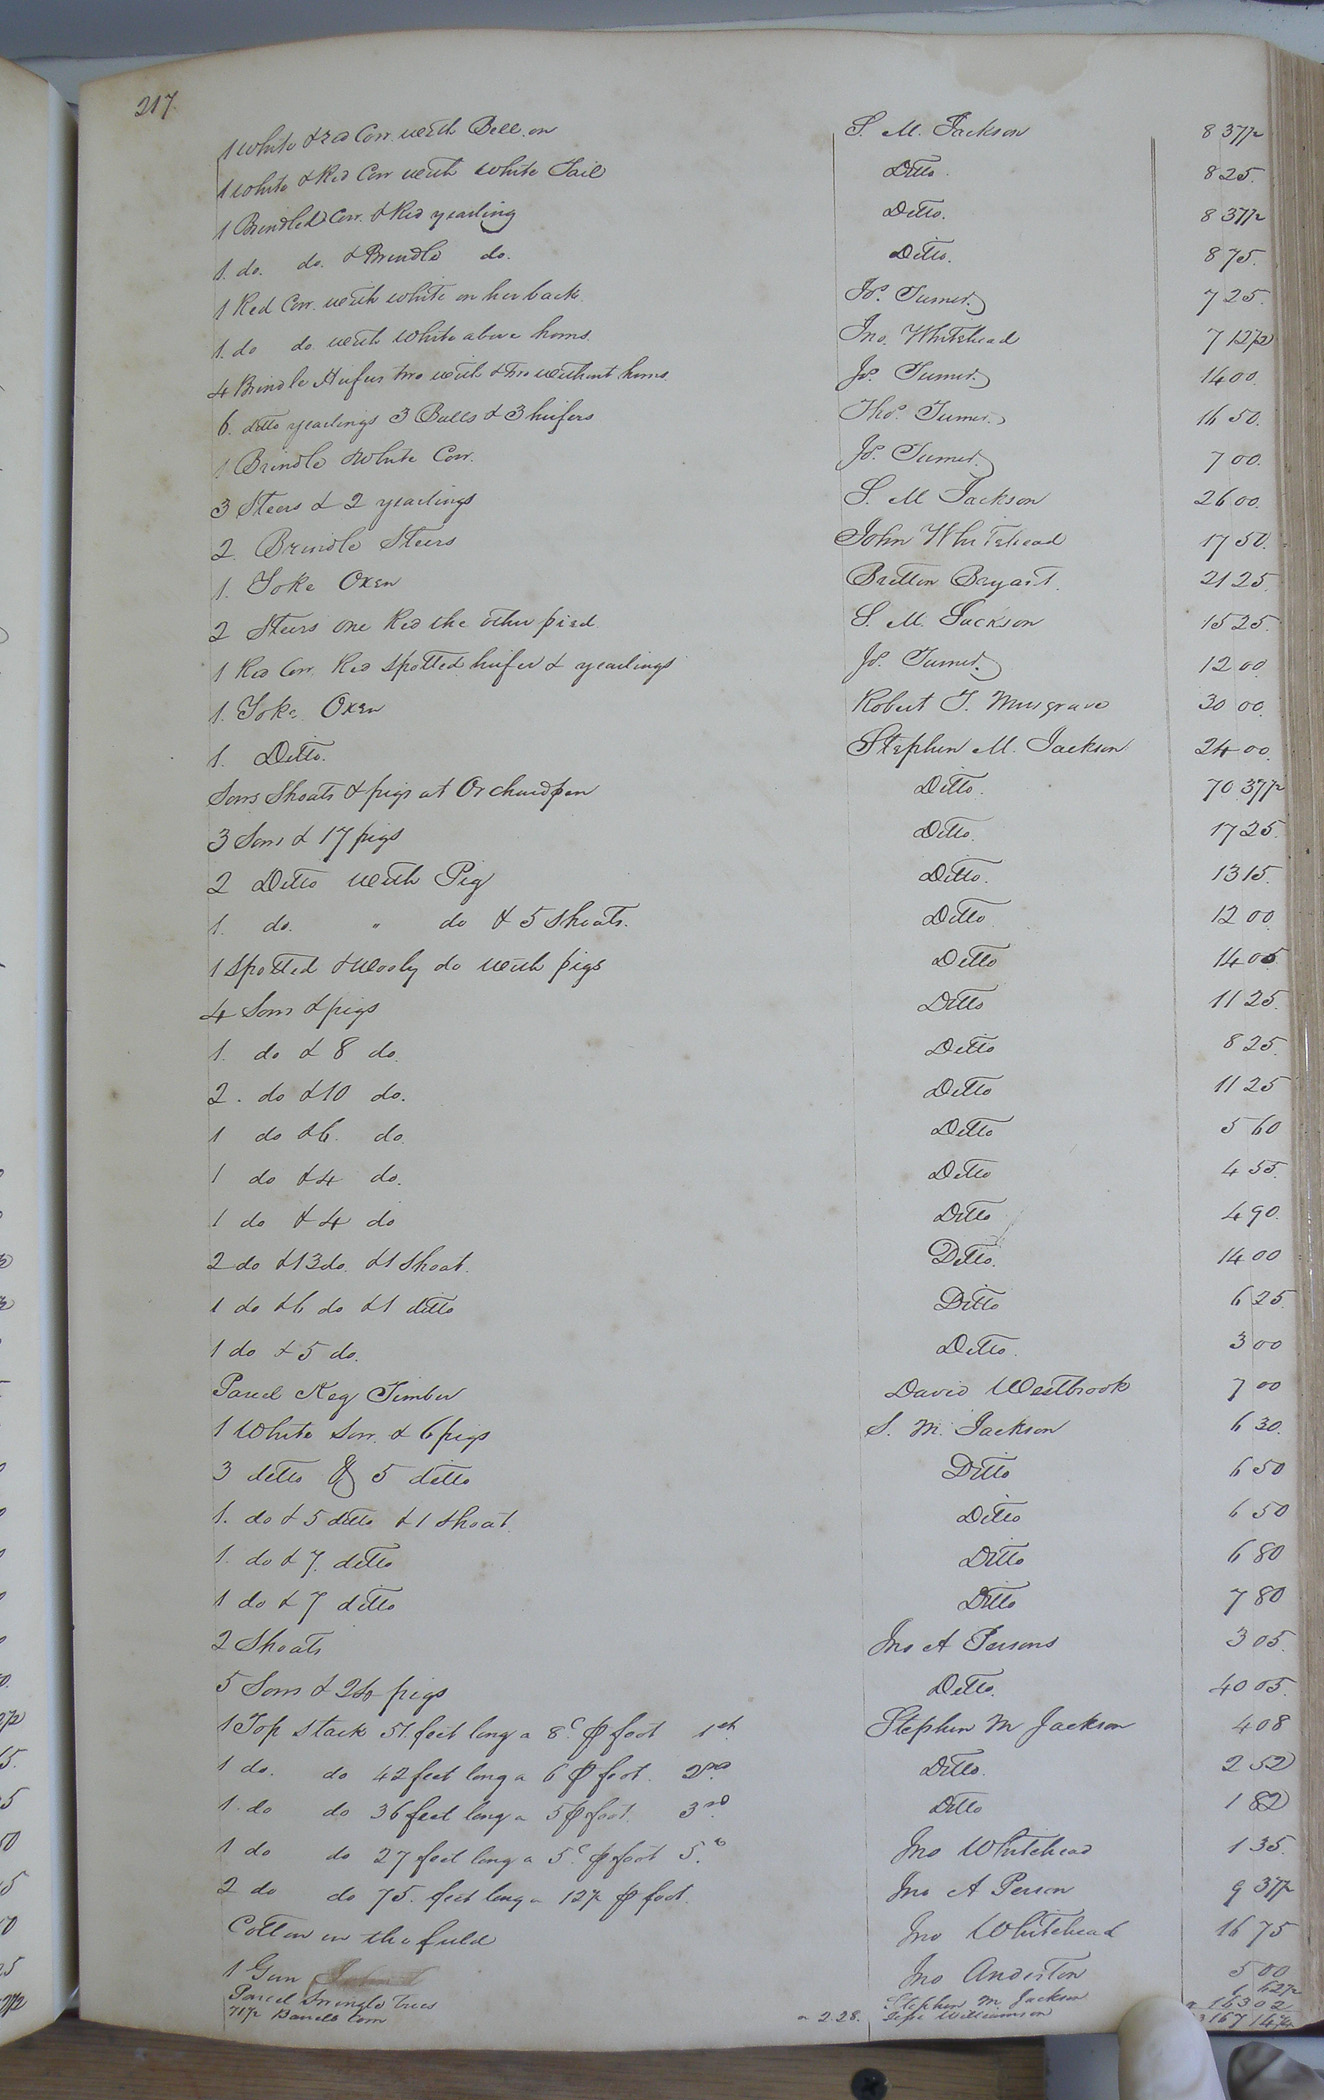 217.
1 White & red Cow with Bell on S. M. Jackson 8 37½
1 White & Red Cow with white Tail Ditto. 8 25.
1 Brindled Cow & Red yearling Ditto. 8 37½
1. do. do. & Brindle do. Ditto. 8 75.
1 Red Cow with white on her back. Js. Turner. 7 25.
1. do do with White above horns. Jno. Whitehead 7 12½
4 Brindle Heifers two with & two without horns Js. Turner. 14 00.
6. ditto yearlings 3 Bulls & 3 heifers Thos. Turner. 16 50.
1 Brindle & White Cow. Js. Turner. 7 00.
3 Steers & 2 yearlings S. M Jackson 26 00.
2. Brindle Steers John Whitehead 17 50.
1. Yoke Oxen Britton Bryant. 21 25.
2 Steers one Red the other pied. S. M. Jackson 15 25.
1 Red Cow, Red spotted heifer & yearlings Js. Turner. 12 00.
1. Yoke Oxen Robert T. Musgrave 30 00.
1. Ditto. Stephen M. Jackson 24 00.
Sows Shoats & pigs at Orchardpen Ditto. 70 37½
3 Sows & 17 pigs Ditto. 17 25.
2 Ditto with Pig Ditto. 13 15.
1. do. " do & 5 Shoats. Ditto 12 00
1 Spotted & Wooly do with pigs Ditto 14 05
4 Sows & pigs Ditto 11 25.
1. do & 8 do. Ditto 8 25.
2. do & 10 do. Ditto 11 25
1 do & 6. do. Ditto 5 60
1 do & 4 do. Ditto 4 55.
1 do & 4 do Ditto 4 90.
2 do & 13 do. & 1 Shoat. Ditto. 14 00
1 do & 6 do & 1 ditto Ditto 6 25.
1 do & 5 do. Ditto. 3 00
Parcel Keg Timber David Westbrook 7 00
1 White Sow & 6 pigs S. M. Jackson 6 30.
3 ditto & 5 ditto Ditto 6 50
1. do & 5 ditto & 1 Shoat. Ditto 6 50
1. do & 7. ditto Ditto 6 80
1 do & 7 ditto Ditto 7 80
2 Shoats Jno A Persons 3 05.
5 Sows & 24 pigs Ditto. 40 05.
1 Top Stack 51 feet long a 8c. ⅌ foot 1st. Stephen M Jackson 4 08
1 do. do 42 feet long a 6 ⅌ foot. 2nd. Ditto. 2 52
1. do do 36 feet long a 5 ⅌ foot. 3rd. Ditto 1 82
1 do do 27 feet long a 5c. ⅌ foot 5. Jno Whitehead 1 35.
2 do do 75. feet long a 12½ ⅌ foot. Jno A Person 9 37½
Cotton in the field Jno Whitehead 16 75
1 Gun Jno Anderton 5 00
Parcel Swingle Trees Stephen M Jackson 62½
71½ Barrels Corn a 2.28. Williamson 163 02
167 14